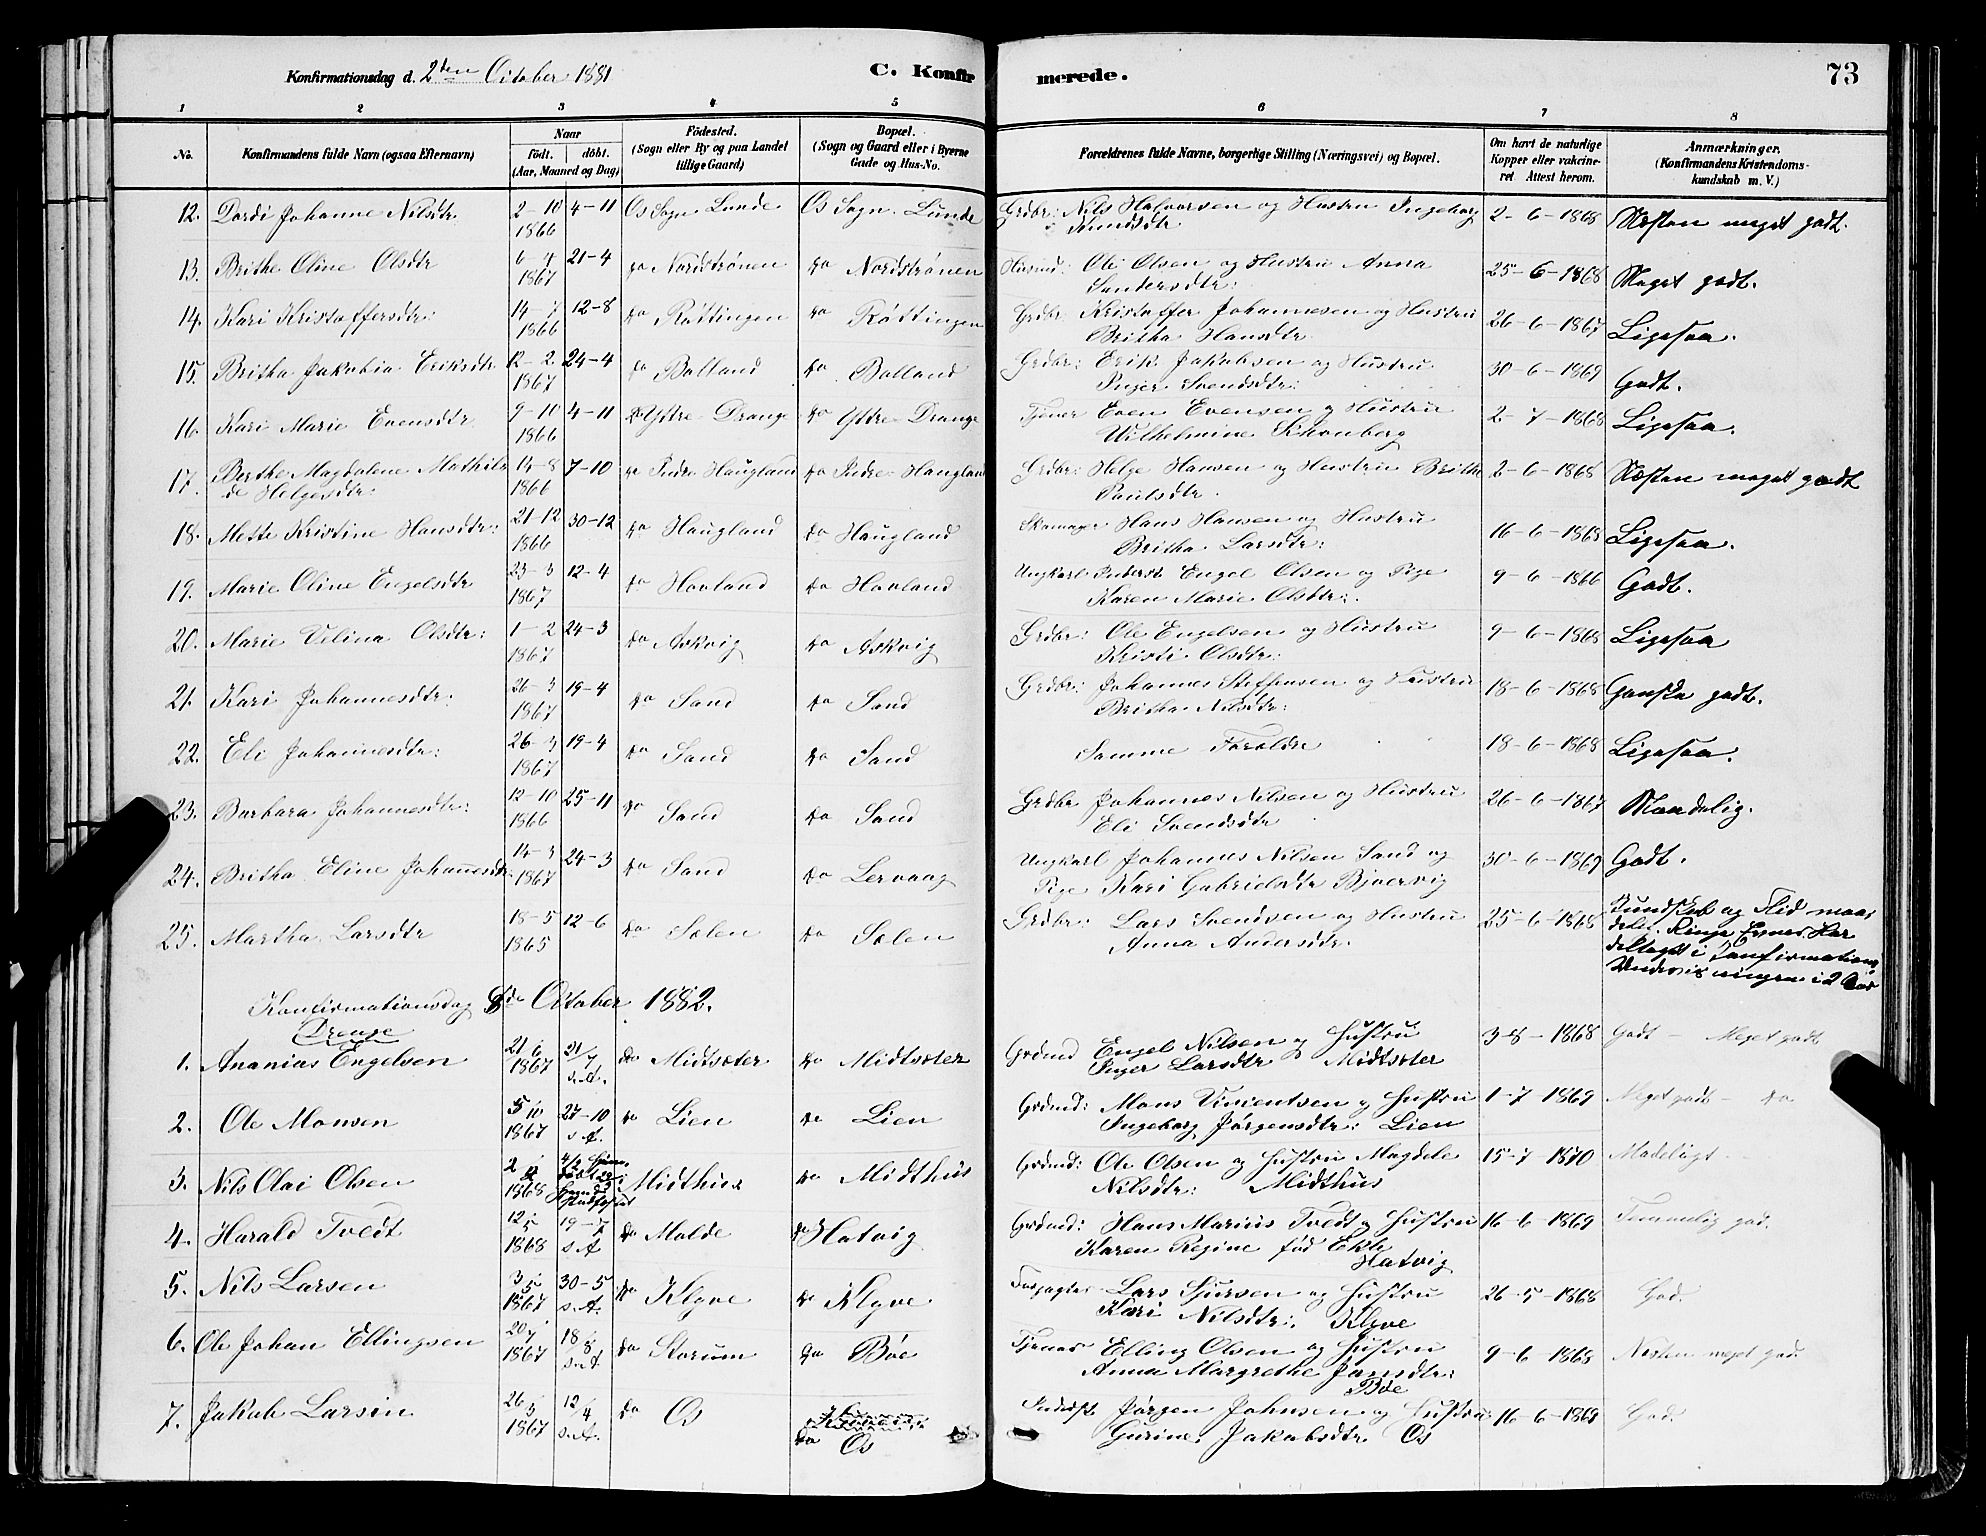 Konfirmationsdag d. 2den October 1881 C. Konfirmerede. 73
1 2 3 4 5 6 7 8
No. Konfirmandens fulde Navn (ogsaa Efternavn) Naar födt. döbt. (Aar, Maaned og Dag) Födested. (Sogn eller By og paa Landet tillige Gaard) Bopæl. (Sogn og Gaard eller i Byerne Gade og Hus-No. Forældrenes fulde Navne, borgerlige Stilling (Næringsvei) og Bopæl. Om havt de naturlige Kopper eller vakcineret Attest herom. Anmærkninger. (Konfirmandens Kristendomskundskab m. V.)
12. Dordi Johanne Nilsdtr 2-10 1866 4-11 Os Sogn Lunde Os Sogn Lunde Grdbr: Nils Halvorsen og Hustru Ingeborg Knudsdtr 2-6-1868 Næsten meget godt.
13. Brithe Oline Olsdtr 6-4 1867 21-4 Do Nordstrønen Do Nordstrønen Husmd: Ole Olsen og Hustru Anna Sandersdtr: 25-6-1868 Meget godt.
14. Kari Kristoffersdtr: 14-7 1866 12-8 Do Røttingen Do Røttingen Grdbr Kristoffer Johannesen og Hustru Britha Hansdtr 26-6-1867 Ligesaa.
15. Britha Jakobia Eriksdtr 12-2 1867 24-4 Do Bolland Do Bolland Grdbr: Erik Jakobsen og Hustru Inger Svendsdtr: 30-6-1869 Godt.
16. Kari Marie Evensdtr 9-10 1866 4-11 Do Ystre Drange Do Ystre Drange Tjener Even Evensen og Hustru Wilhelmine Schonberg 2-7-1868 Ligesaa.
17. Berthe Magdalene Mathilde Helgesdtr: 14-8 1866 7-10 Do Indre Haugland Do Indre Haugland Grdbr: Helge Hansen og Hustru Brithe Paulsdtr. 2-6-1868 Næsten meget godt
18. Mette Kristine Hansdtr: 21-12 1866 30-12 Do Haugland Do Haugland Skomager Hans Hansen og Hustru Britha Larsdtr: 16-6-1868 Ligesaa.
19. Marie Oline Engelsdtr 23-3 1867 12-4 Do Hovland Do Hovland Ungkarl Inderst Engel Olsen og Pige Karen Marie Olsdtr: 9-6-1866 Godt.
20. Marie Velina Olsdtr: 1-2 1867 24-3 Do Askvig Do Askvig Grdbr: Ole Engelsen og Hustru Kristi Olsdtr: 9-6-1868 Ligesaa
21. Kari Johannesdtr: 26-3 1867 19-4 Do Sand Do Sand Grdbr: Johannes Steffensen og Hustru Britha Nilsdtr: 18-6-1868 Ganske godt.
22. Eli Johannesdtr: 26-3 1867 19-4 Do Sand Do Sand Samme Forældre 18-6-1868 Ligesaa.
23. Barbara Johannesdtr: 12-10 1866 25-11 Do Sand Do Sand Grdbr Johannes Nilsen og Hustru Eli Svendsdtr 26-6-1867 Maadelig.
24. Britha Eline Johannesdtr: 14-3 1867 24-3 Do Sand Do Lervaag Ungkarl Johannes Nilsen Sand og Pige Kari Gabrielsdtr Bjørvig 30-6-1869 Godt.
25. Martha Larsdtr 18-5 1865 12-6 Do Sølen Do Sølen Grdbr: Lars Svendsen og Hustru Anna Andersdtr: 25-6-1868 Kundskab og Flid maadelig. Ringe Evner. Har deltaget i Confirmations Undervisningen i 2 Aar
Konfirmationsdag 8de October 1882.
Drenge
1. Ananias Engelsen 21/6 1867 21/7 s.A. Do Midtsæter Do Midtsæter Grdmd Engel Nilsen og Hustru Inger Larsdtr Midtsæter 3-8-1868 Godt - Meget godt
2. Ole Monsen 5/10 1867 27-10 s.A. Do Lien Do Lien Grdmd: Mons Vincentsen og Hustru Ingeborg Jørgensdtr: Lien 1-7-1869 Meget godt - Do
3. Nils Olai Olsen 1868 Midthus Do Midthus Grdmd: Ole Olsen og Hustru Magdele Nilsdtr: Midthus 15-7 1870 Madeligt
4. Harald Tvedt 12/5 1868 19-7 s.A Do Molde Do Hatvig Grdmd: Hans Marius Tvedt og Hustru Karen Regine fød Ekle Hatvig 16-6-1869 Temmelig god.
5. Nils Larsen 3/5 1867 30-5 s.A. Do Klyve Do Klyve Forpagter Lars Sjursen og Hustru Kari Nilsdtr: Klyve 26-5-1868 God.
6. Ole Johan Ellingsen 20/7 1867 18/8 s.A Do Storum Do Bøe Tjener Elling Olsen og Hustru Anna Margrethe Jansdtr: Bøe 9-6-1868 Nesten meget god.
7. Jakob Larsen 26/3 1867 12/4 s.A. Do Os Do Os Inderst Jørgen Johnsen og Hustru Gurine Jakobsdtr Os 16-6-1868 God.